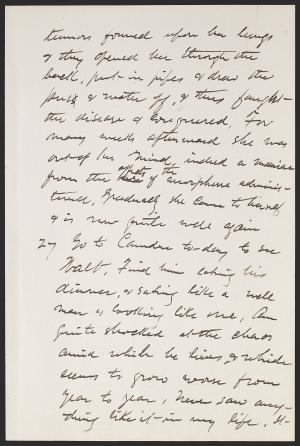 tumors formed upon her lungs
& they opened her through the
back, put in pipes & drew the
puss & matter off, & thus fought
the disease & conquered. For
many weeks afterward she was
out of her mind, indeed a maniac
from the effects of the morphine adminis-
tered. Gradually she came to herself
& is now quite well again
27 Go to Camden to-day to see
Walt. Find him eating his
dinner, & eating like a well
man & looking like one. Am
quite shocked at the chaos
amid which he lives, & which
seems to grow worse from
year to year. Never saw any-
thing like it in my life. It